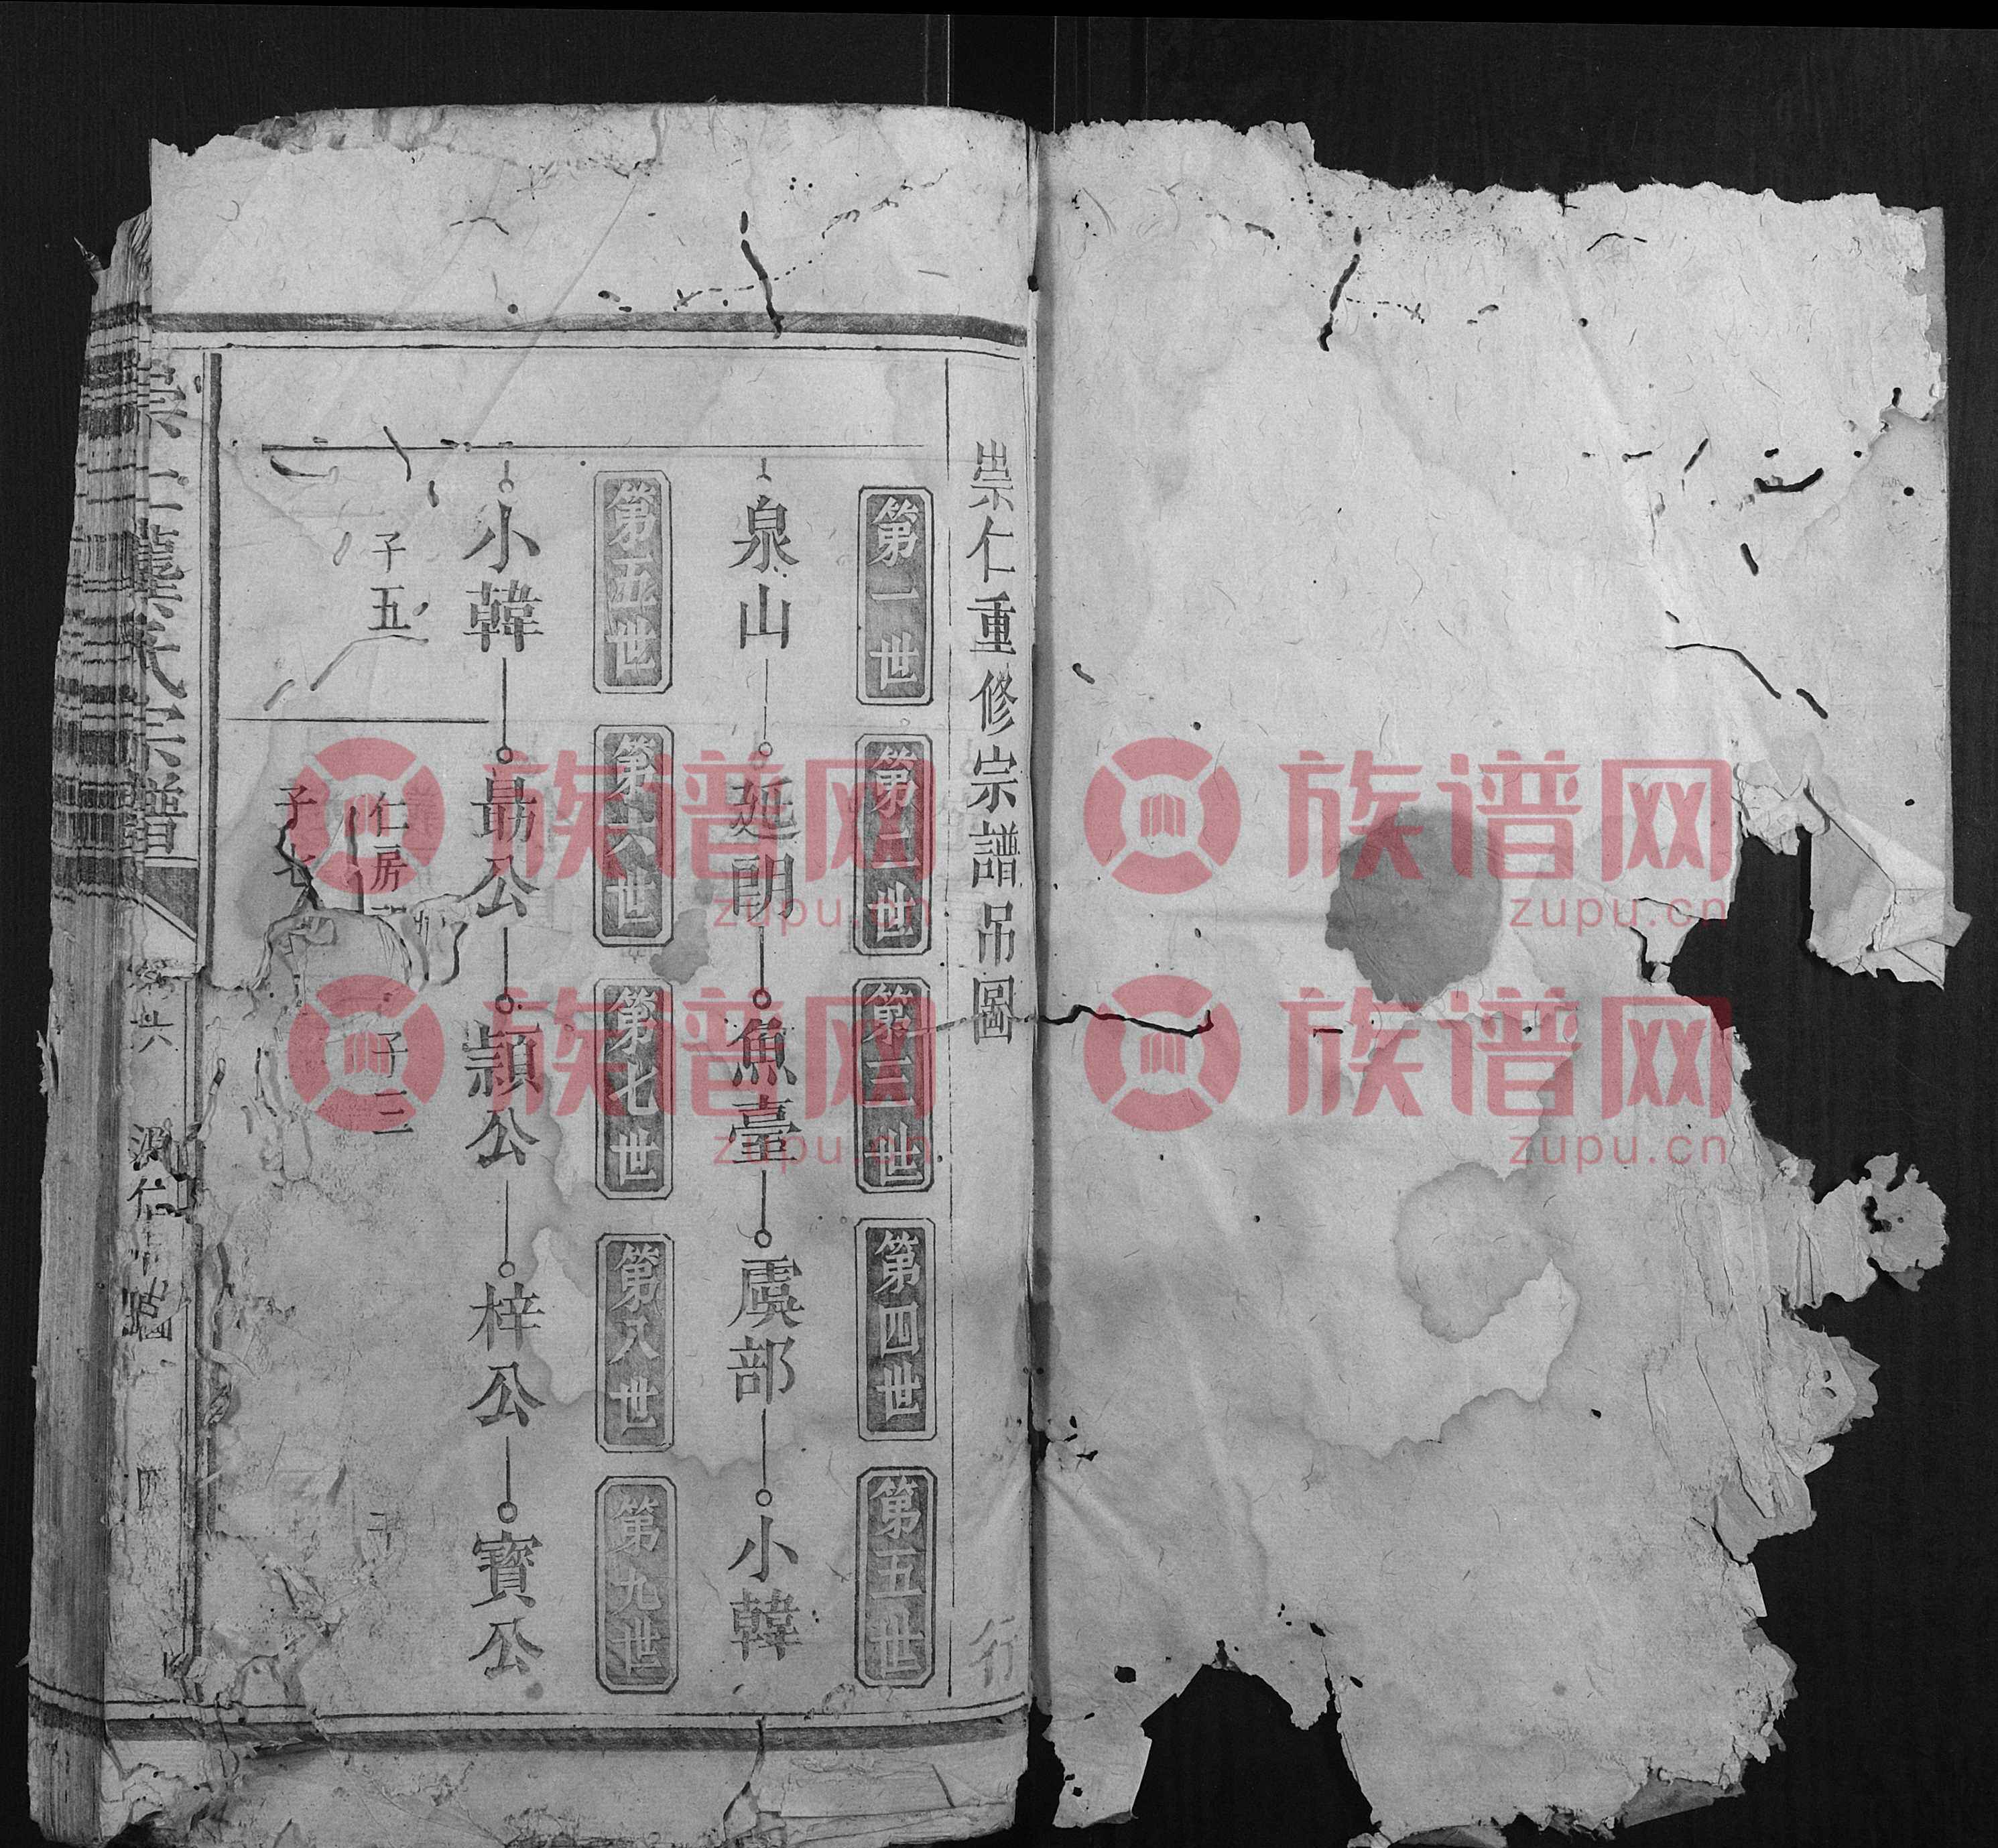 崇仁重修宗譜吊圖
行
第一世 第二世 第三世 第四世 第五世
泉山 延朗 魚臺 虞部 小韓
第五世 第六世 第七世 第八世 第九世
小韓 勗公 顗公 梓公 寶公
子五 仁房 子三
子七
崇仁龔氏宗譜
卷六
源仁
族谱网
zupu.cn
族谱网
zupu.cn
族谱网
zupu.cn
族谱网
zupu.cn